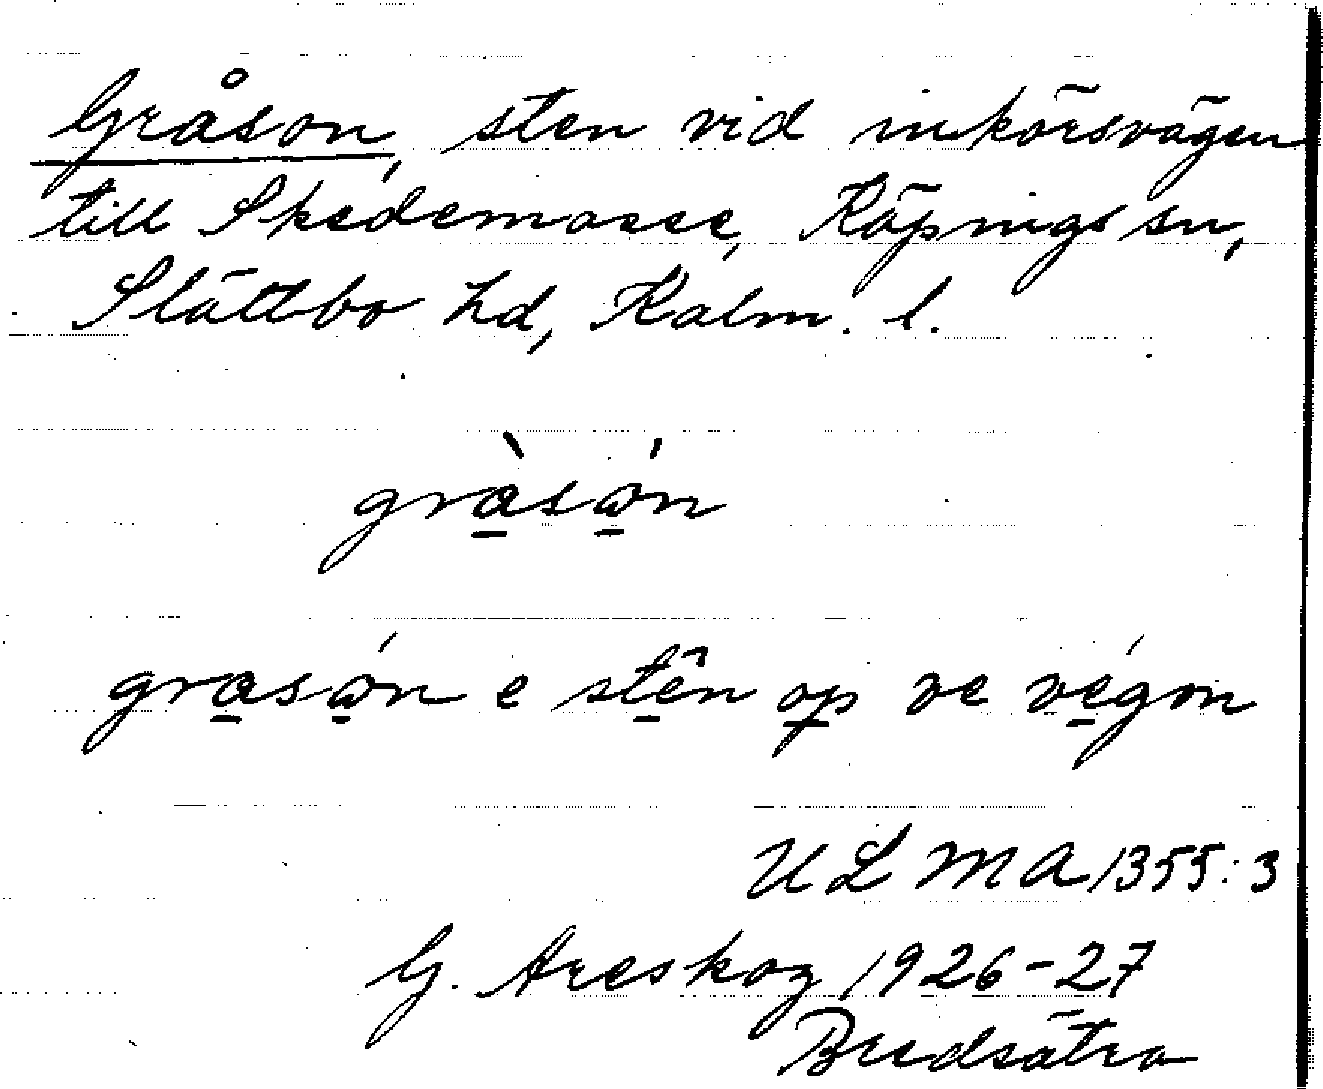 Gråson, sten vid inkörsvägen
till Skedemosse, Köpings sn,
Slättbo hd, Kalm. l.
grà̱sǿ̱n
gra̱sǿ̱n e stē̱̂n o̱p ve vé̱gon
ULMA 1355:3
G. Areskog 1926-27
Bredsätra